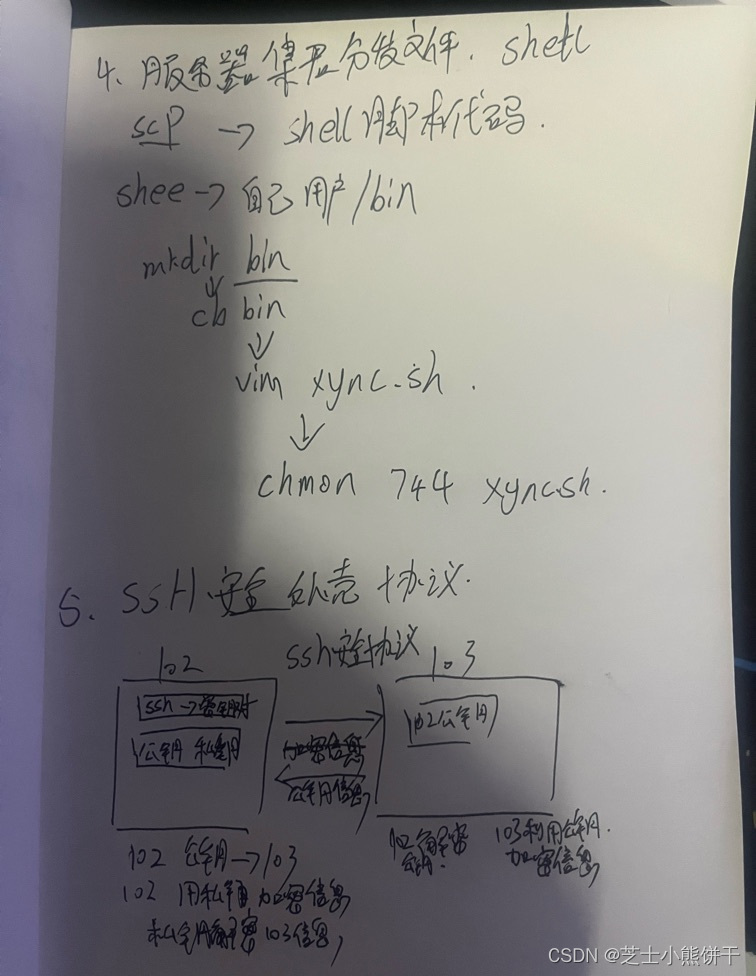 4、服务器集群分发文件. shell
scp → shell 脚本代码.
shee → 自己用户/bin
mkdir bin
cb bin
vim xync.sh .
chmon 744 xync.sh.
5. SSH 安全外壳协议.
ssh安全协议
102
103
ssh → 密钥对
公钥 私钥
102公钥
加密信息
公钥信息
102 公钥 → 103
102解密
公钥.
103利用公钥.
加密信息
102 用私钥加密信息
私钥解密103信息,
CSDN @芝士小熊饼干